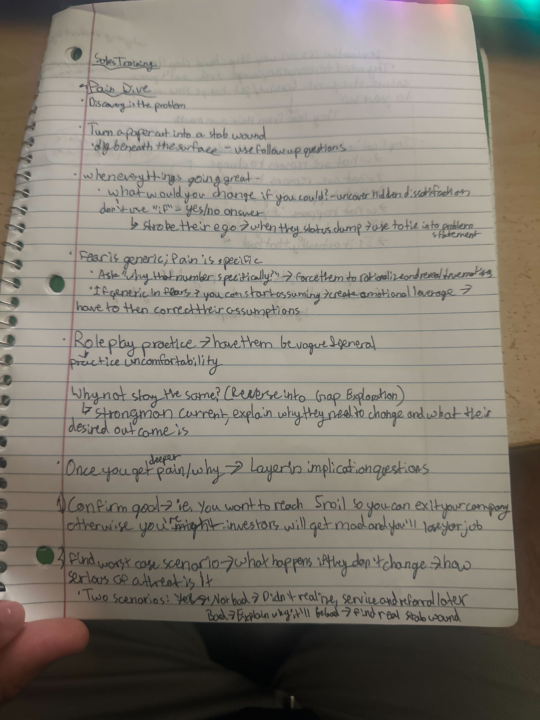 Sales Training
Pain Dive
• Discovery is the problem
• Turn a paper cut into a stab wound
• dig beneath the surface - use follow up questions
• when everything's going great -
• what would you change if you could? - uncover hidden dissatisfaction
don't use "if" = yes/no answer
↳ strobe their ego → when they status dump → use to tie into problem
statement
• Fear is generic; Pain is specific
• Ask "why that number specifically?" → force them to rationalize and reveal true
• If generic in fears → you can start assuming → create emotional leverage →
have to then correct their assumptions
• Roleplay practice → have them be vague & general
practice uncomfortability
Why not stay the same? (Reverse into Gap Exploration)
↳ strongman current, explain why they need to change and what their
desired outcome is
• Once you get deeper pain/why → Layer in implication questions
1) Confirm goal → ie. you want to reach 5 so you can exit your company
otherwise you investors will get mad and you'll lose your job
2) Find worst case scenario → what happens if they don't change → how
serious of a threat is it
• Two scenarios: Not bad → Didn't realize, service and referral later
Bad → Explain why it'll be bad → find real stab wound